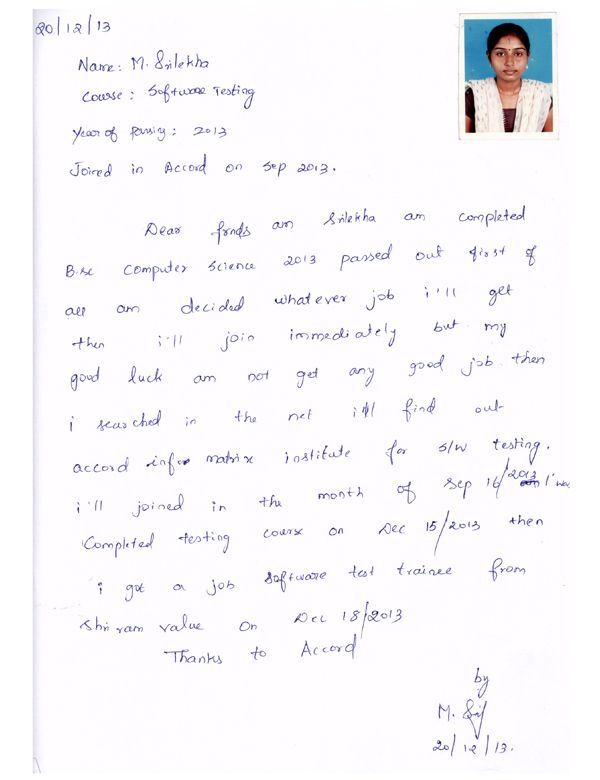 20/12/13
Name: M. Srilekha
Course: Software Testing
Year of Passing: 2013
Joined in Accord on Sep 2013.
Dear frnds am Srilekha am completed
B.sc computer science 2013 passed out first of
all am decided whatever job i'll get
then i'll join immediately but my
good luck am not get any good job. then
i searched in the net i'll find out
accord info matrix institute for S/W testing.
i'll joined in the month of Sep 16/2013 I was
Completed testing course on Dec 15/2013 then
i got a job software test trainee from
Shriram value on Dec 18/2013
Thanks to Accord
by
M. Sri
20/12/13.